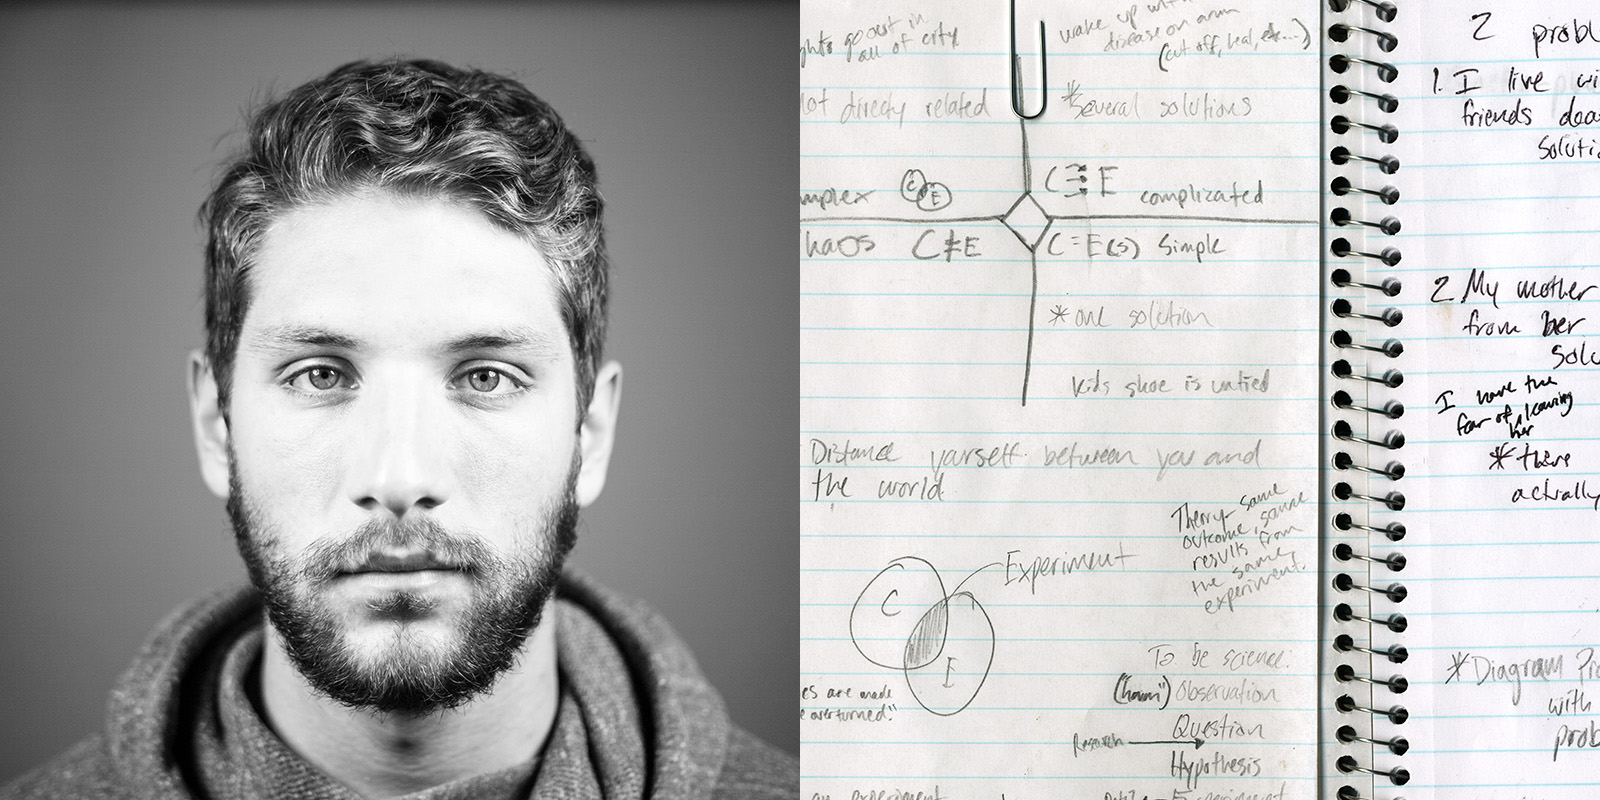 go out in
all of city
wake up with
disease on arm
(cut off, heal, etc...)
directly related
*Several solutions
C E
C E complicated
C ≠ E
C = E(s) Simple
* one solution
kids shoe is untied
Distance yourself between you and
the world
Theory - same
outcome, same
results from
the same
experiment.
Experiment
C
E
To be science:
("hmm") Observation
Question
Research
Hypothesis
are made
overturned."
an experiment
Experiment
2
1. I live
friends
2. My mother
from her
I have the
fear of leaving
her
* there
actually
* Diagram
with